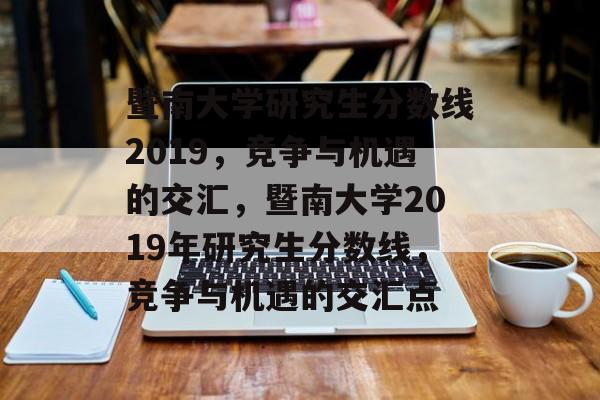 暨南大学研究生分数线
2019，竞争与机遇
的交汇，暨南大学20
19年研究生分数线，
竞争与机遇的交汇点